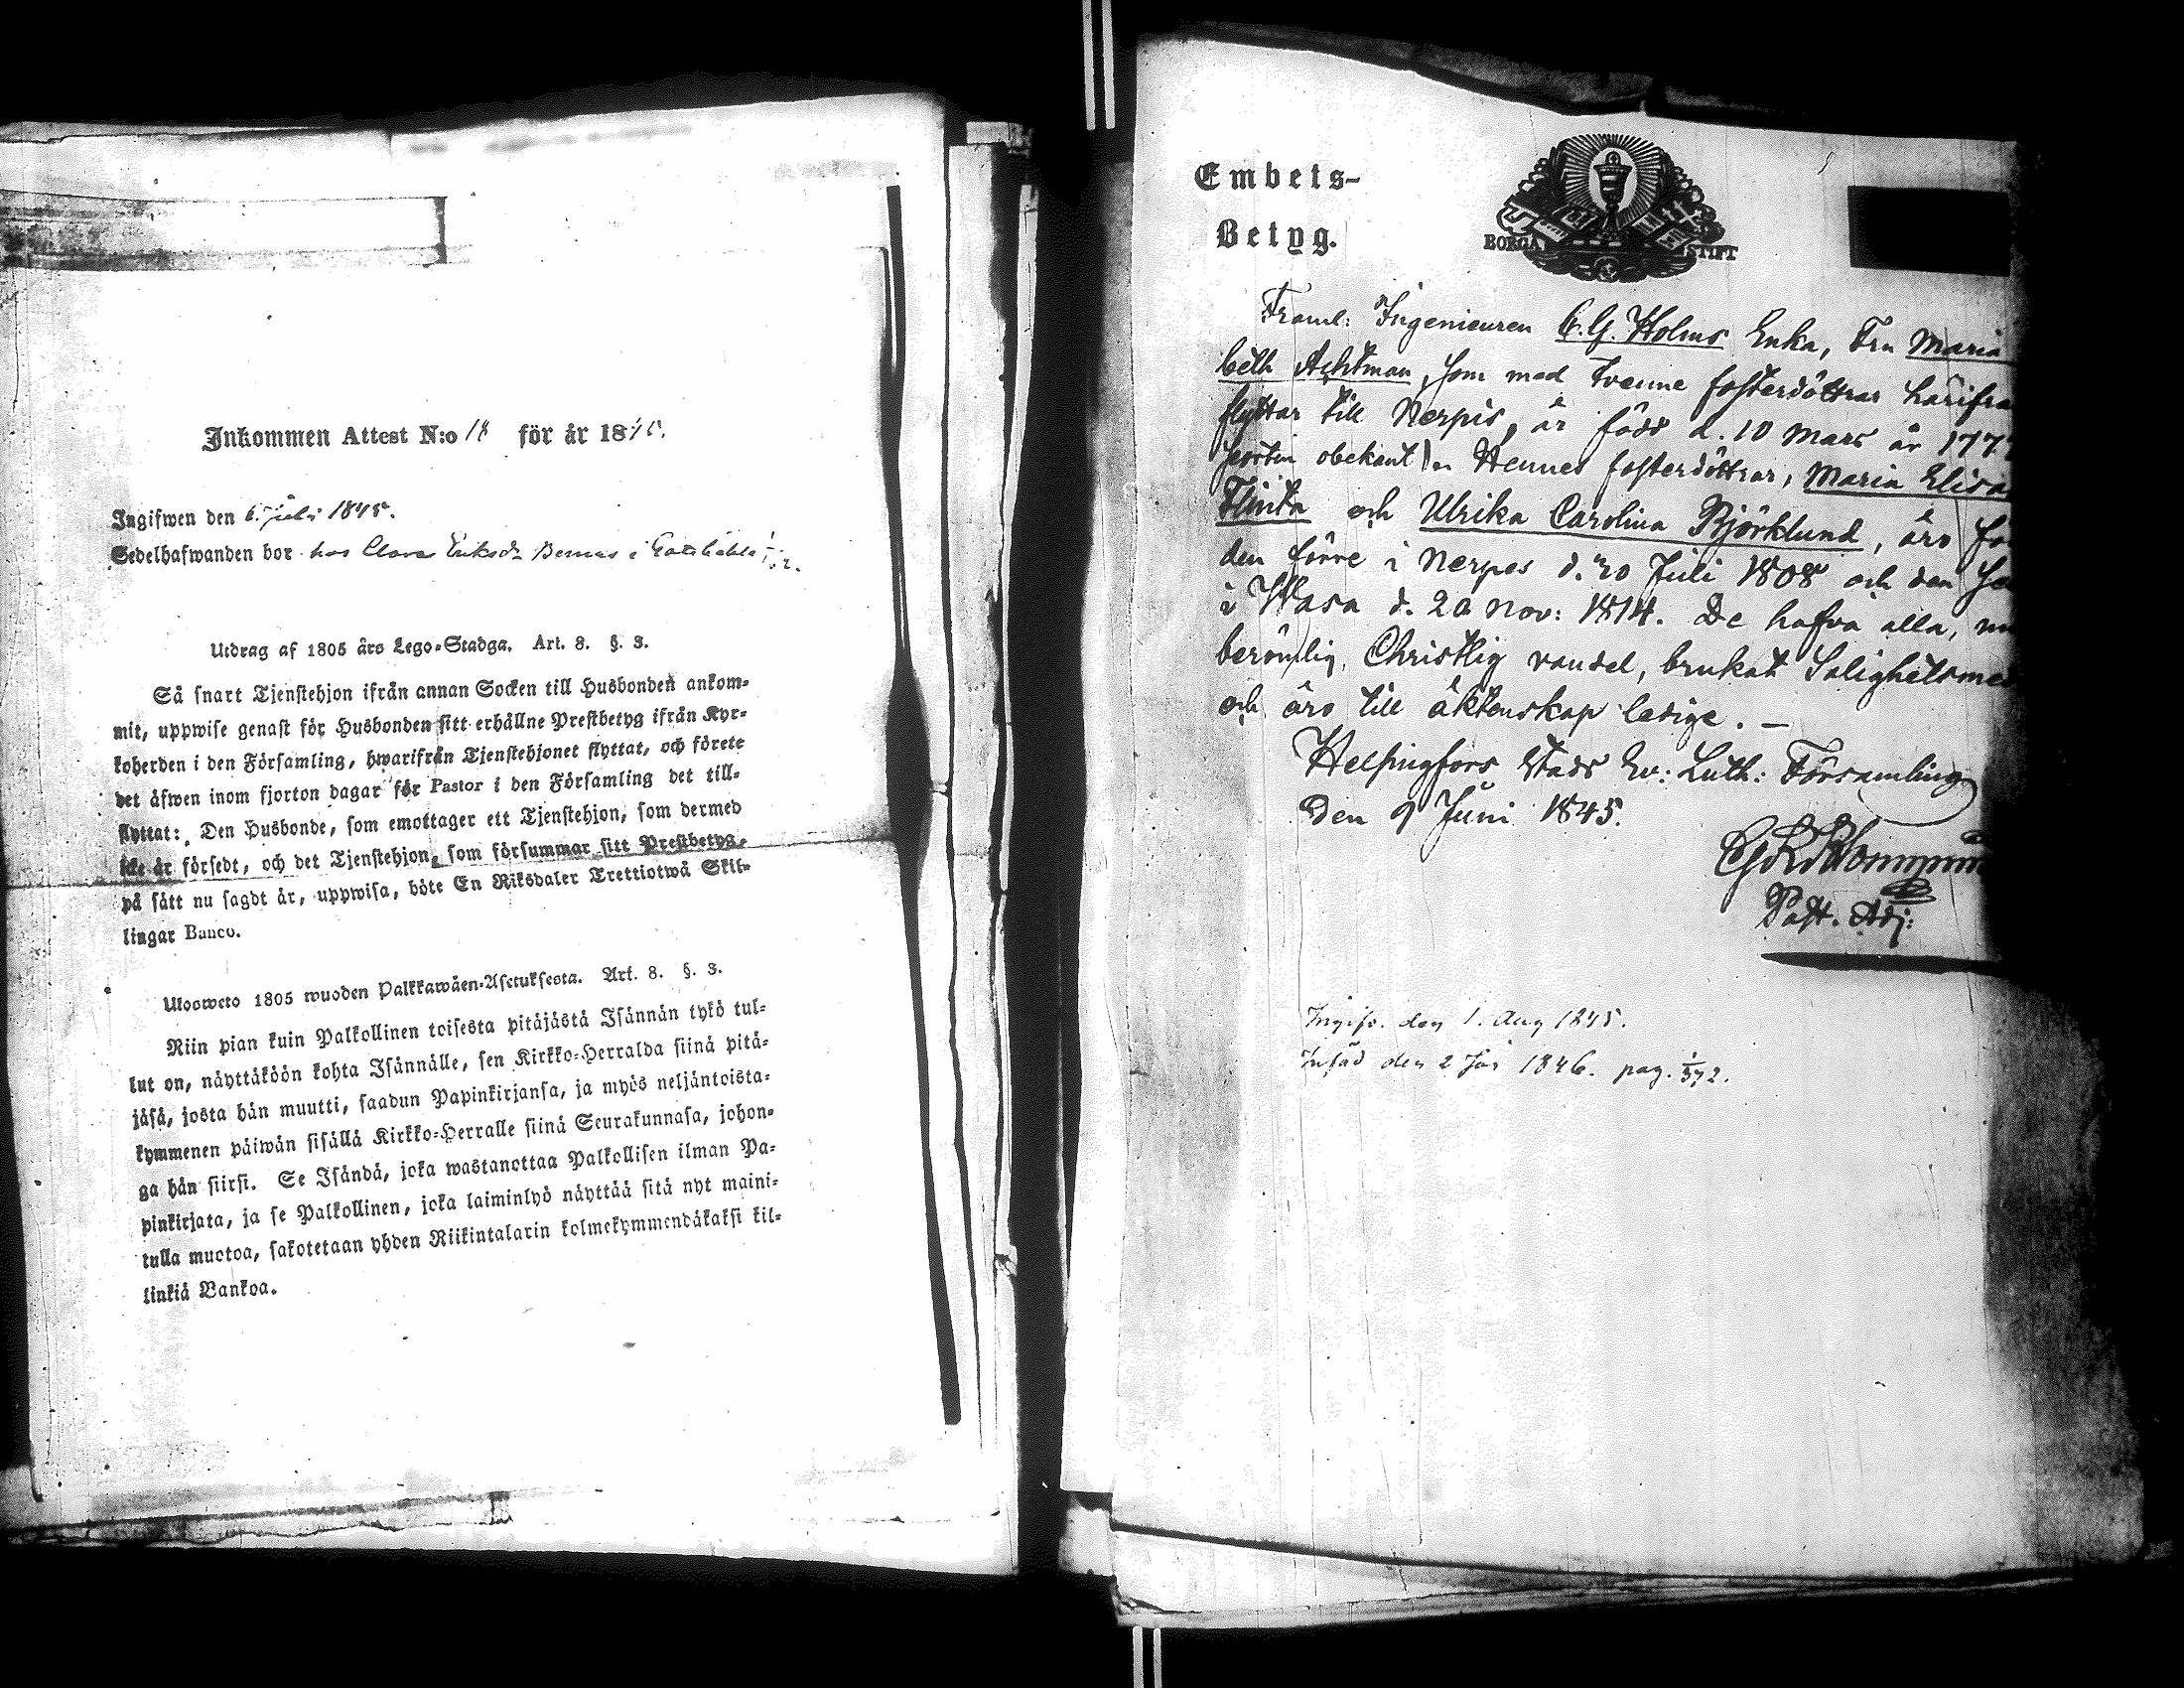 Inkommen Attest N:o 18 för år 1845.
Ingifwen den 6. Juli 1845.
Sedelhafwanden bor hos Clara Eriksdr i
Utdrag af 1805 års Lego-Stadga. Art. 8. §. 3.
Så snart Tjenstehjon ifrån annan Socken till Husbonden ankom-
mit, uppwise genast för Husbonden sitt erhållne Prestbetyg ifrån Kyr-
koherden i den Församling, hwarifrån Tjenstehjonet flyttat, och förete
det äfwen inom fjorton dagar för Pastor i den Församling det till-
flyttat: Den Husbonde, som emottager ett Tjenstehjon, som dermed
icke är försedt, och det Tjenstehjon, som försummar sitt Prestbetyg,
på sätt nu sagdt är, uppwisa, böte En Riksdaler Trettiotwå Skil-
lingar Banco.
Ulosweto 1805 wuoden Palkkawäen-Asetuksesta. Art. 8. §. 3.
Niin pian kuin Palkollinen toisesta pitäjästä Isännän tykö tul-
lut on, näyttäköön kohta Isännälle, sen Kirkko-Herralda siinä pitä-
jäsä, josta hän muutti, saadun Papinkirjansa, ja myös neljäntoista-
kymmenen päiwän sisällä Kirkko-Herralle siinä Seurakunnasa, johon-
ga hän siirsi. Se Isändä, joka wastanottaa Palkollisen ilman Pa-
pinkirjata, ja se Palkollinen, joka laiminlyö näyttää sitä nyt maini-
tulla muotoa, sakotetaan yhden Riikintalarin kolmekymmendäkaksi kil-
linkiä Bankoa.
Embets-
Betyg.
BORGÅ STIFT
Framl: Ingenieuren C. G. Holms Enka, Fru Maria
beth Achtman, som med tvenne fosterdöttrar härifrå
flyttar till Nerpis, är född d. 10 Mars år 177
obekant Hennes fosterdöttrar, Maria Elisa
Flinta och Ulrika Carolina Björklund, äro fö
den förre i Nerpes d. 20 Juli 1808 och den se
i Wasa d. 20 Nov: 1814. De hafva alla,
berömlig, Christlig vandel, brukat Salighetsmed
och äro till äktenskap ledige. —
Helsingfors Stads Ev: Luth: Församling
den 9 Juni 1845.
Past. Adj:
Ingifv. den 1. Aug 1845.
Införd den 2 1846. pag. 1/372.